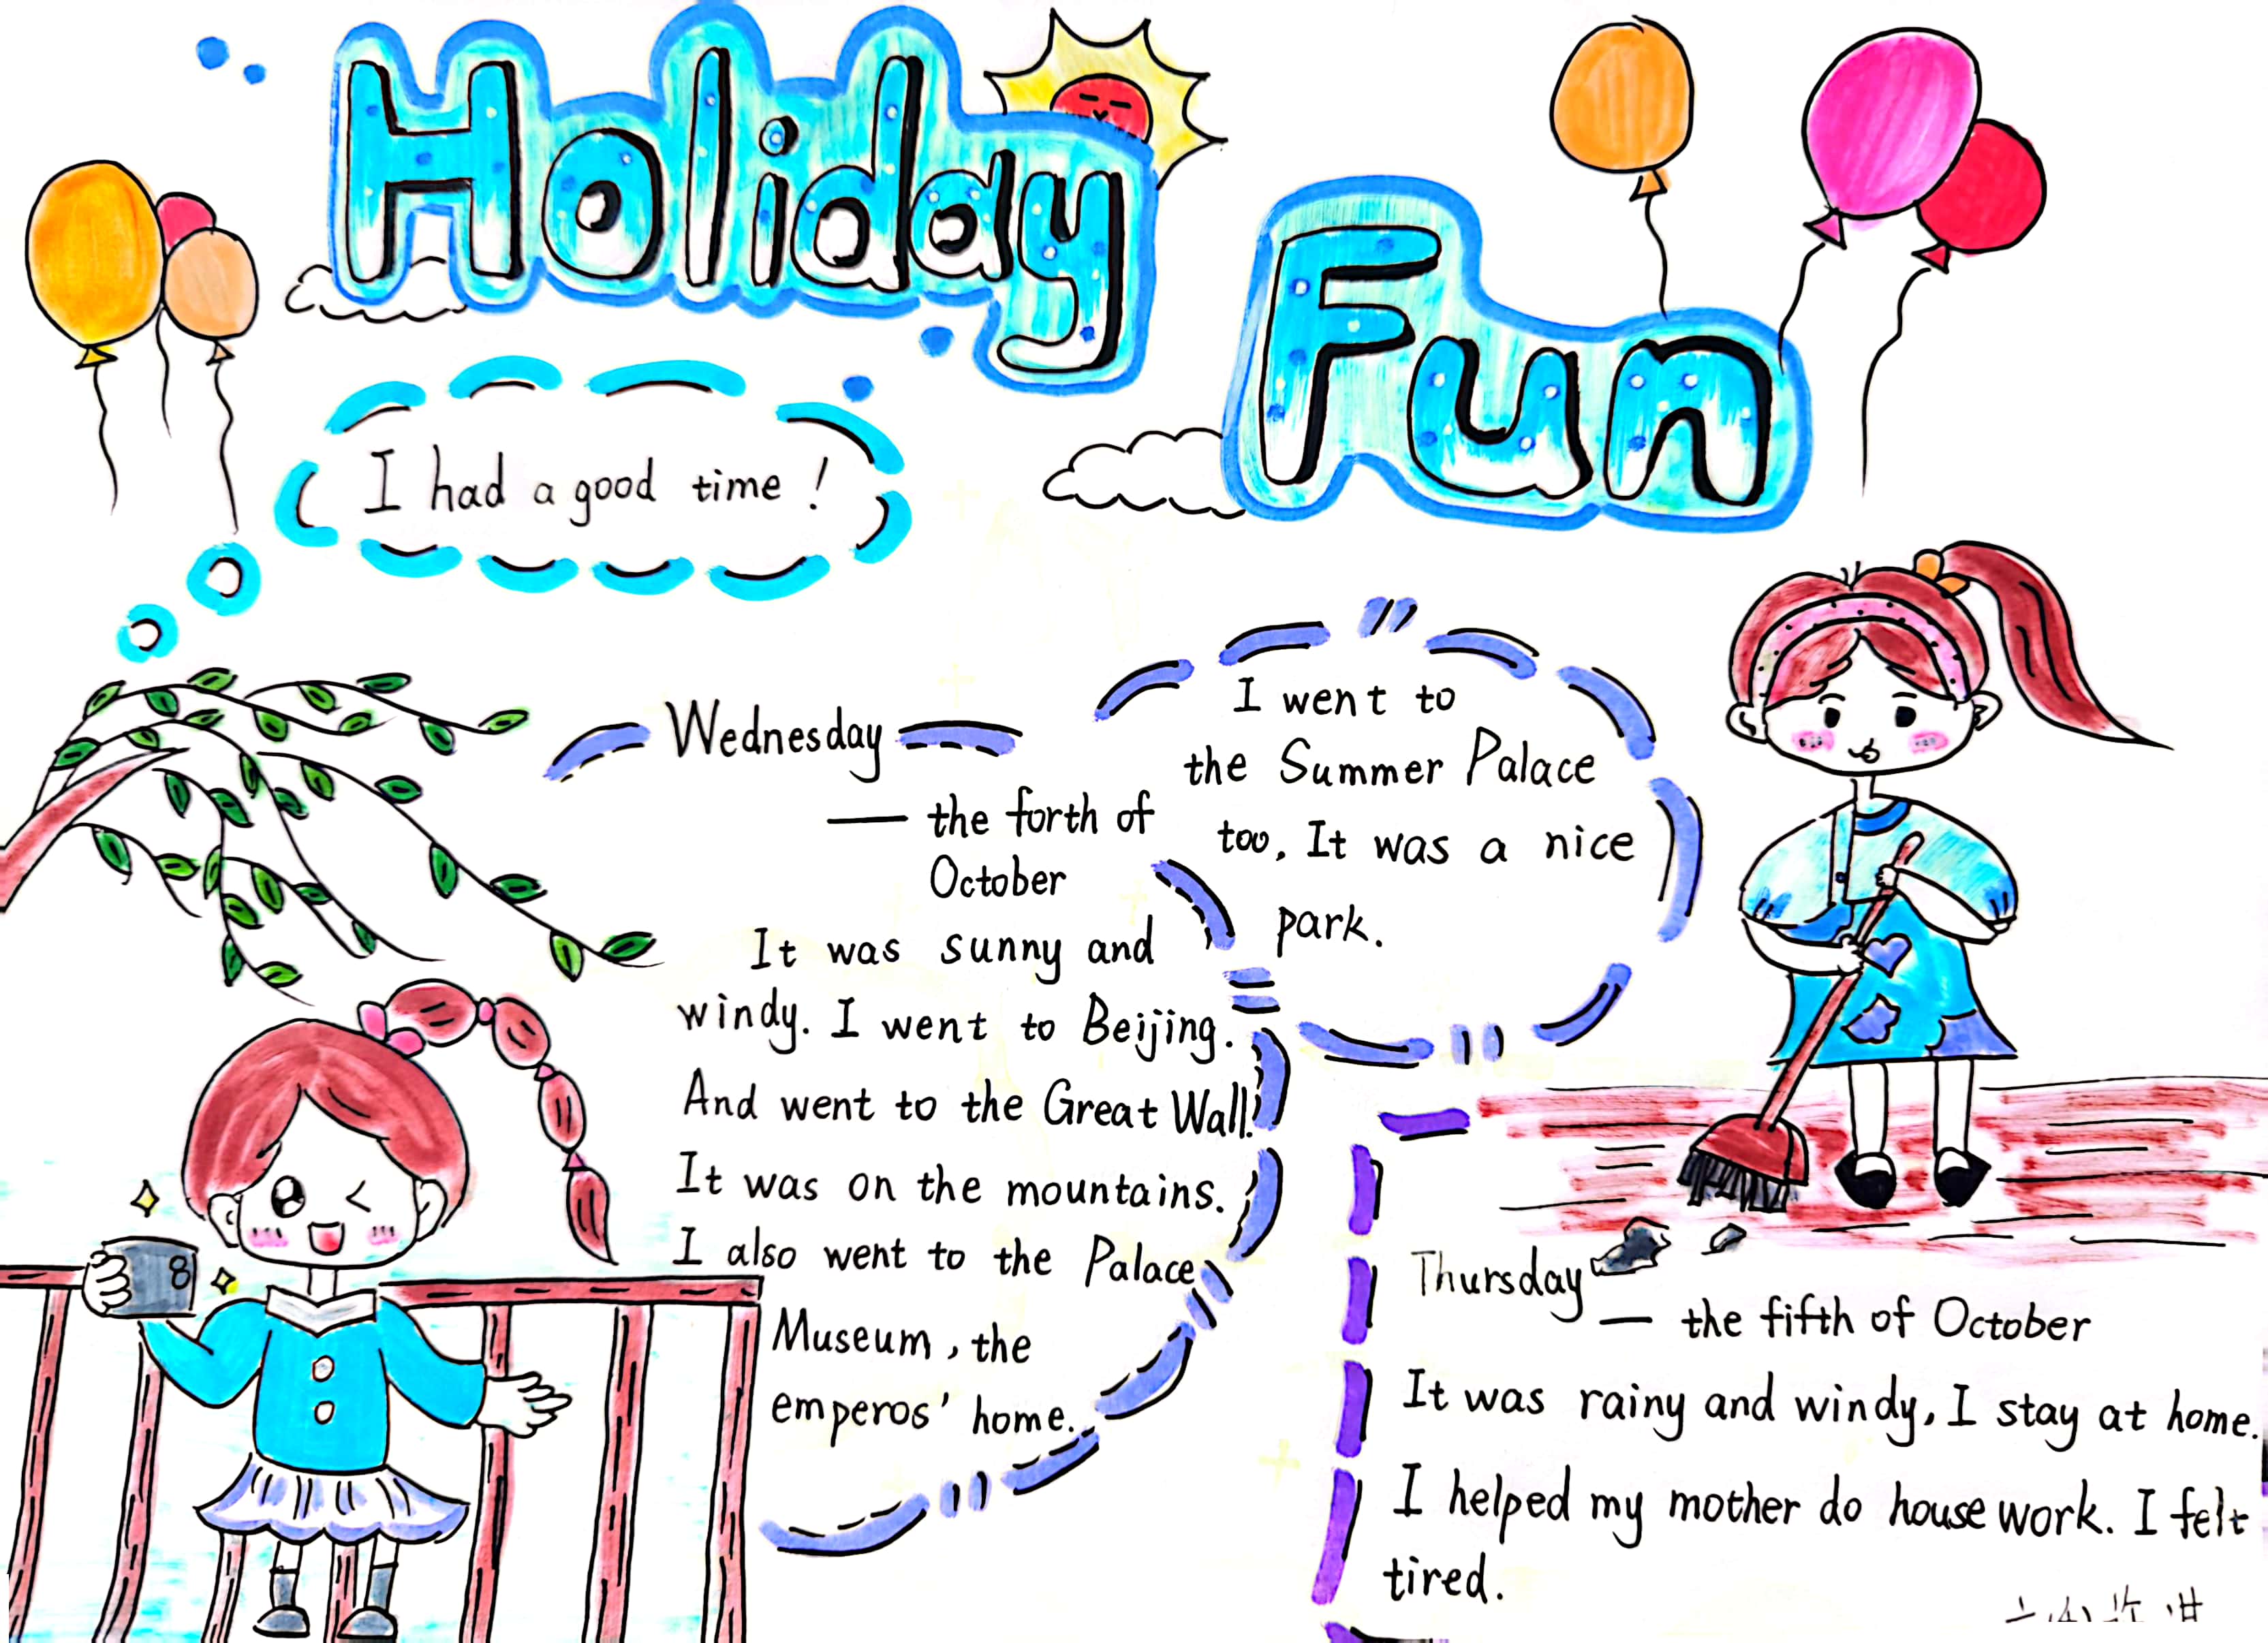 Holiday
Fun
I had a good time!
Wednesday
— the forth of
October
It was sunny and
windy. I went to Beijing.
And went to the Great Wall.
It was on the mountains.
I also went to the Palace
Museum, the
emperos' home.
I went to
the Summer Palace
too. It was a nice
park.
8
Thursday
— the fifth of October
It was rainy and windy, I stay at home.
I helped my mother do house work. I felt
tired.